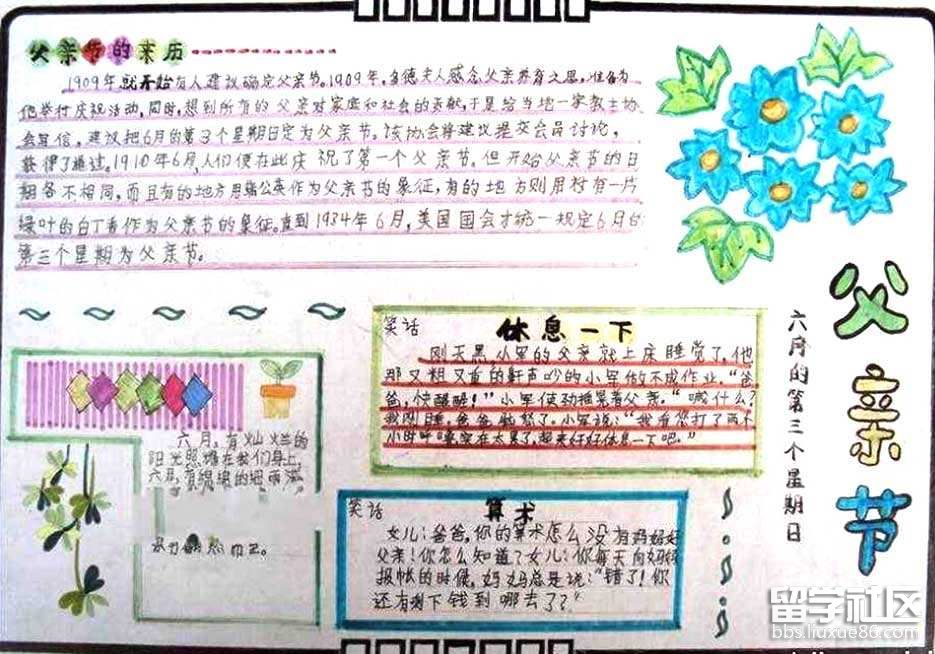 父亲节的来历
1909年就开始有人建议确定父亲节。1909年,多德夫人感念父亲养育之恩,准备为
他举行庆祝活动,同时,想到所有的父亲对家庭和社会的贡献,于是给当地一家教士协
会写信,建议把6月的第3个星期日定为父亲节。该协会将建议提交会员讨论,
获得了通过。1910年6月,人们便在此庆祝了第一个父亲节。但开始父亲节的日
期各不相同,而且有的地方用蒲公英作为父亲节的象征,有的地方则用衬有一片
绿叶的白丁香作为父亲节的象征。直到1934年6月,美国国会才统一规定6月的
第三个星期为父亲节。
父亲节
六月的第三个星期日
笑话
休息一下
刚天黑,小军的父亲就上床睡觉了,他
那又粗又重的鼾声吵的小军做不成作业。“爸
爸,快醒醒!”小军使劲摇晃着父亲。“喊什么?
我刚睡。爸爸 小军说:“我看您打了两个
小时呼噜实在太累了,起来好好休息一下吧。”
六月,有灿烂的
阳光照耀在我们身上,
六月,有绵绵的细雨
笑话
算术
女儿:爸爸,你的算术怎么没有妈妈好
父亲!你怎么知道?女儿:你每天向妈妈
报帐的时候,妈妈总是说:“错了!你
还有剩下钱到哪去了?”
留学社区
bbs.liuxue86.com